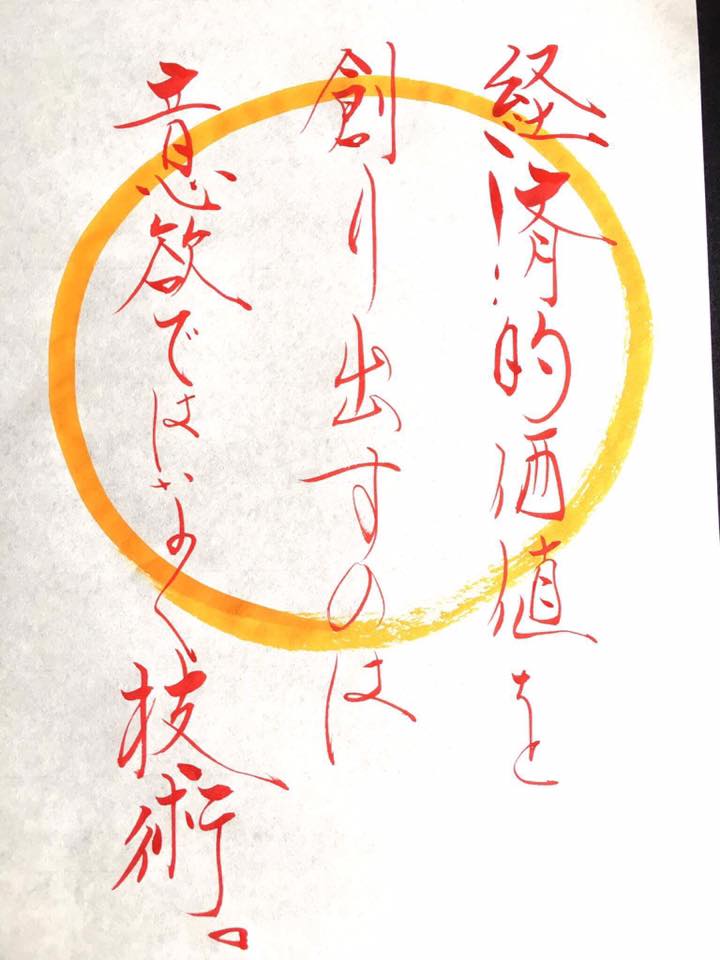 経済的価値を
創り出すのは
意欲ではなく技術。